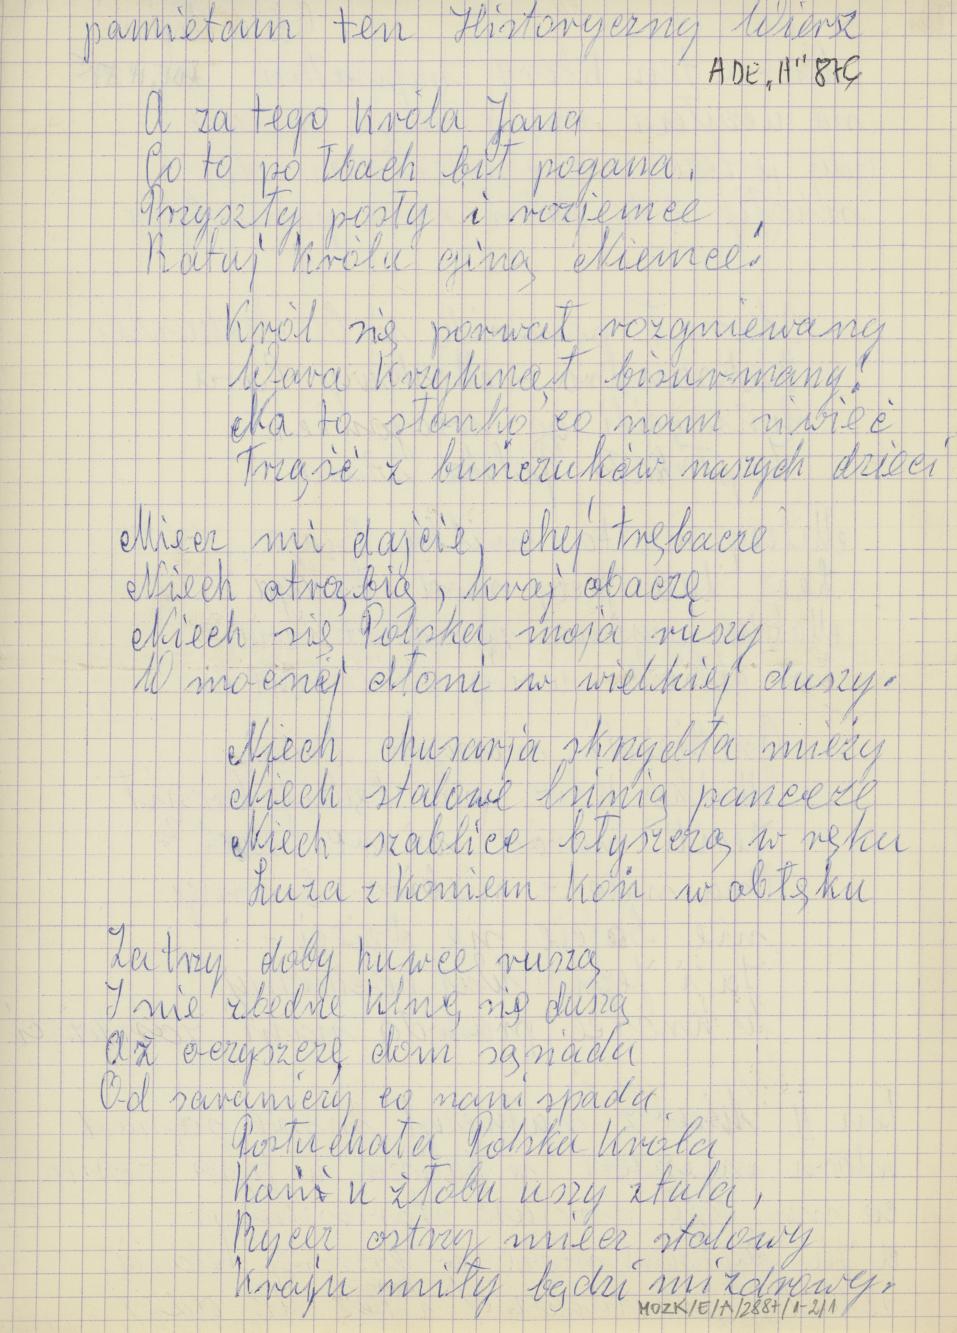 pamietam ten Historyczny Wiersz
ADE „H" 87Ç
A za tego Króla Jana
Co to po łbach bił pogana.
Przyszły posły i rozjemce
Ratuj Królu giną Niemce!
Król się porwał rozgniewany
Wara Krzyknął bisurmany!
Na to słonko co nam świeć
Trząść z buńczuków naszych dzieci
Miecz mi dajcie, chej trębacze
Niech otrąbią, kraj obaczę
Niech się Polska moja ruszy
W mocnej dłoni w wielkiej duszy.
Niech chusarja skrzydła mieży
Niech stalowe lśnią panceże
Niech szablice błyszczą w ręku
Luza z Koniem Koń w obłęku
Za trzy doby huwce ruszą
I nie zbedne klnę się duszą
Aż oczyszczę dom sąsiadu
Od saranczy co nani spadu
Posłuchała Polska Króla
Koniś u żłobu uszy stula,
Rycer ostrzy miecz stalowy
Kraju miły będzi mi zdrowy.
MOZK/E/A/2887/1-2/1